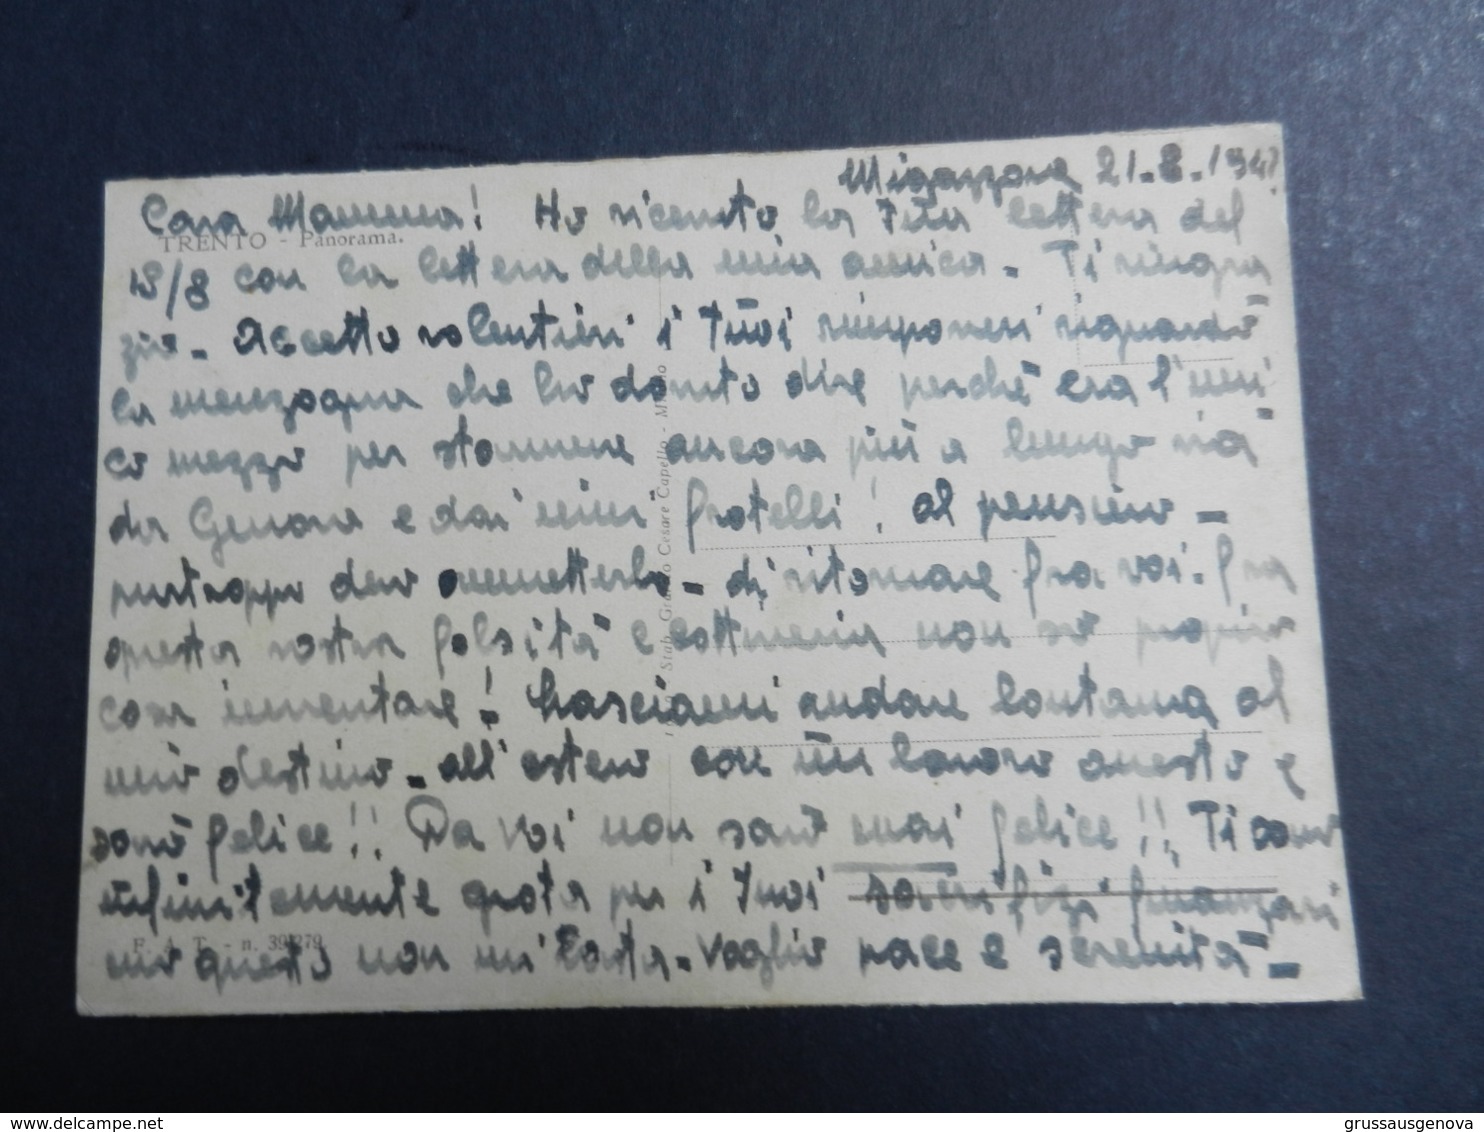 Migazzone 21.8.194
Cara Mamma! Ho ricevuto la Tua lettera del
TRENTO - Panorama.
18/8 con la lettera della mia amica - Ti ringra
zio - Accetto volentieri i Tuoi rimproveri riguardo
la menzogna che ho dovuto dire perché era l'uni
co mezzo per starmene ancora più a lungo via
da Genova e dai miei fratelli! al pensiero -
purtroppo devo ammetterlo - di ritornare fra voi. fra
questa vostra falsità e non so proprio
cosa inventare! Lasciami andare lontana al
mio destino - all'estero con un lavoro onesto e
sarò felice!! Da voi non sarò mai felice!! Ti sono
infinitamente grata per i Tuoi sacrifizi finanziari
F. A. T. - n. 39279
ma questo non mi basta - voglio pace e serenità -
Stab. Grafico Cesare Capello - Milano